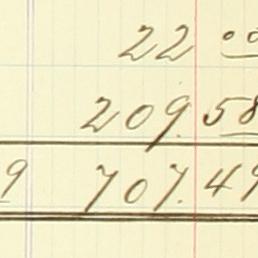 22 00
209.58
9 707.49